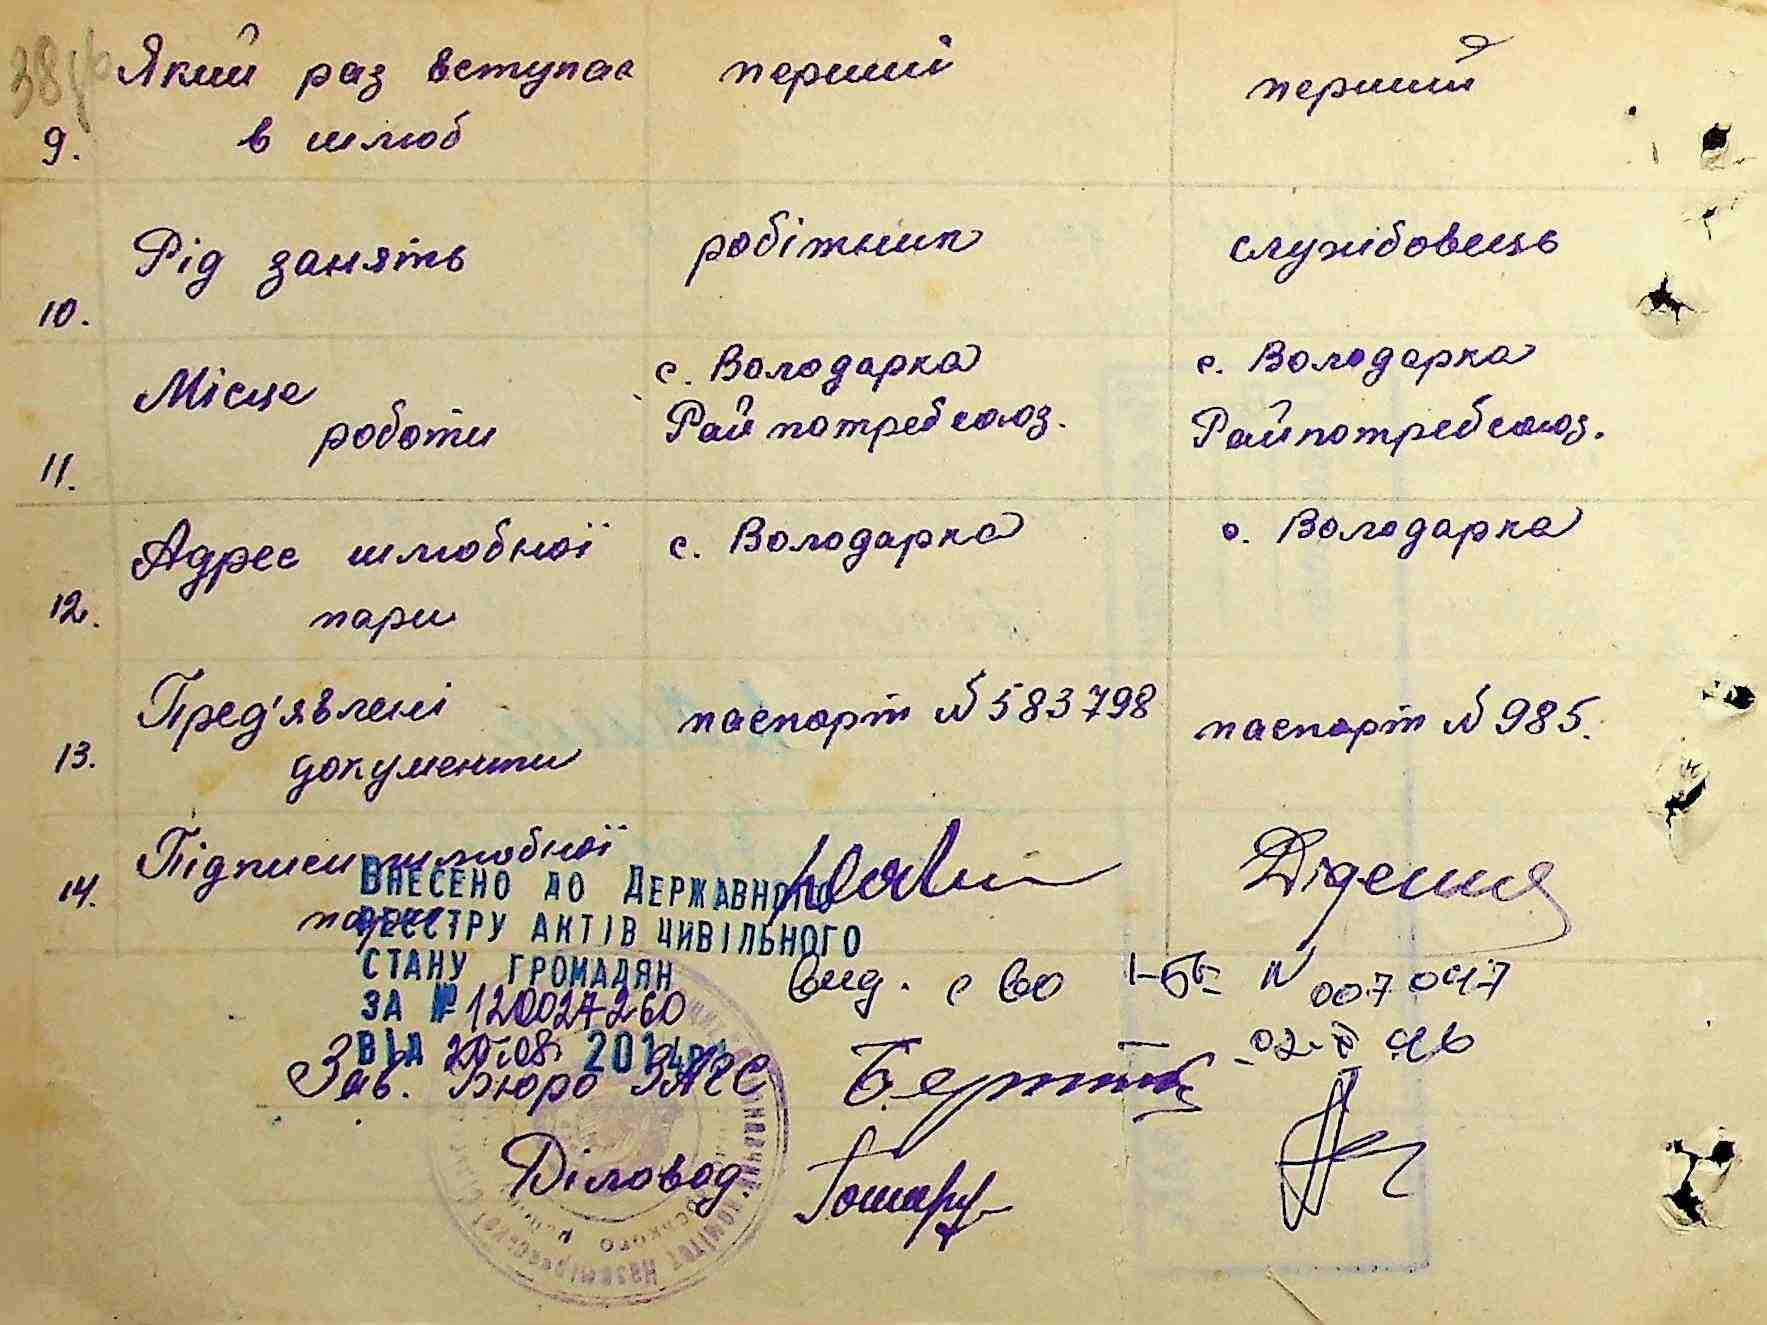 38
9. Який раз вступає перший перший
в шлюб
10. Рід занять робітник службовець
11. Місце с. Володарка с. Володарка
роботи Райпотребсоюз. Райпотребсоюз.
12. Адрес шлюбної с. Володарка с. Володарка
пари
13. Пред'явлені паспорт N 583798 паспорт N 985.
документи
14. Підписи шлюбної Діденко
пари
Внесено до Державного
реєстру актів цивільного
стану громадян
за № 120027260
від 20.08. 2014р.
вид. с во І-БК N 007047
02. 96
Зав. Бюро ЗАГС
Діловод